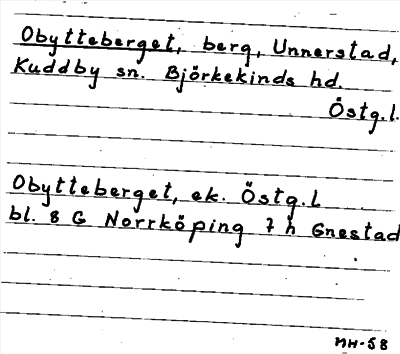 Obytteberget, berg, Unnerstad,
Kuddby sn. Björkekinds hd.
Östg.l.
Obytteberget, ek. Östg.l
bl. 8 G Norrköping 7 h Gnestad
MH-58